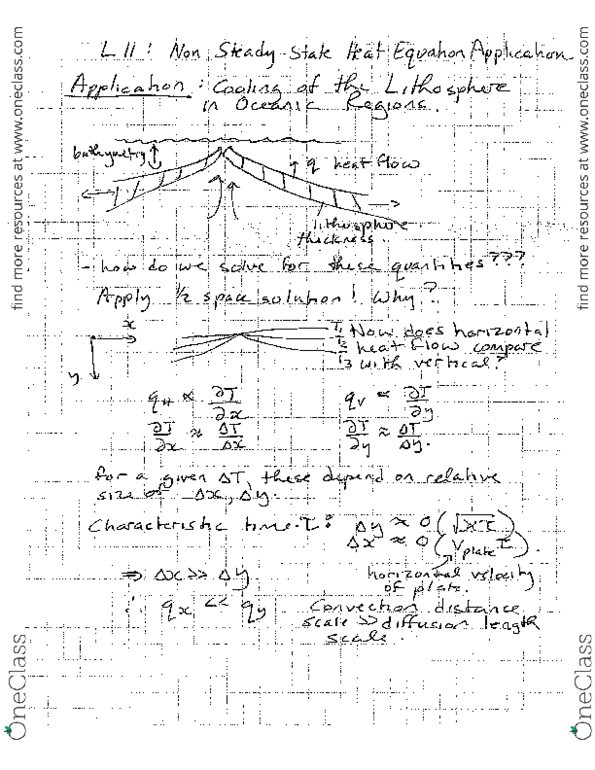 L 11 : Non Steady-State Heat Equation Application
Application : Cooling of the Lithosphere
in Oceanic Regions.
bathymetry
q heat flow
lithosphere
thickness.
- how do we solve for these quantities???
Apply ½ space solution! Why?
x
y
T₁
T₂
T₃
How does horizontal
heat flow compare
with vertical?
q_H ∝ ∂T/∂x
q_v ∝ ∂T/∂y
∂T/∂x ≈ ΔT/Δx
∂T/∂y ≈ ΔT/Δy.
for a given ΔT, these depend on relative
size of Δx, Δy.
Characteristic time τ: Δy ≈ O(√κτ)
Δx ≈ O(V_plate τ).
⇒ Δx >> Δy
horizontal velocity
of plate.
∴ q_x << q_y
Convection distance
scale >> diffusion length
scale.
find more resources at www.oneclass.com
find more resources at www.oneclass.com
OneClass
OneClass